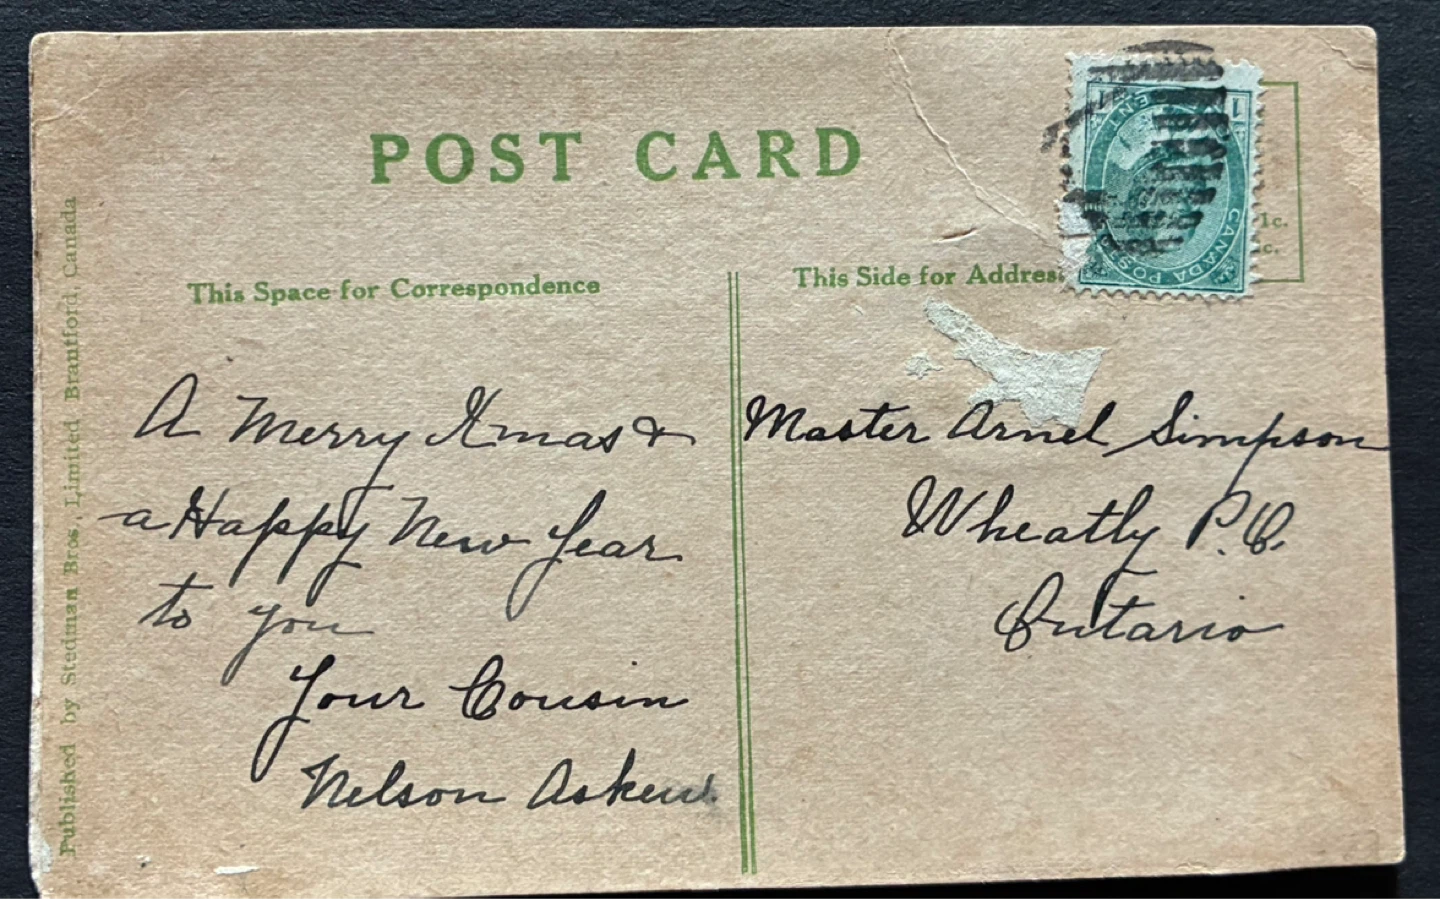 POST CARD
This Space for Correspondence
This Side for Address
1c.
c.
A Merry Xmas &
a Happy New Year
to you
Your Cousin
Nelson Askew
Master Arnel Simpson
Wheatly P.O.
Ontario
Published by Stedman Bros., Limited Brantford, Canada
CANADA POSTAGE
1
1